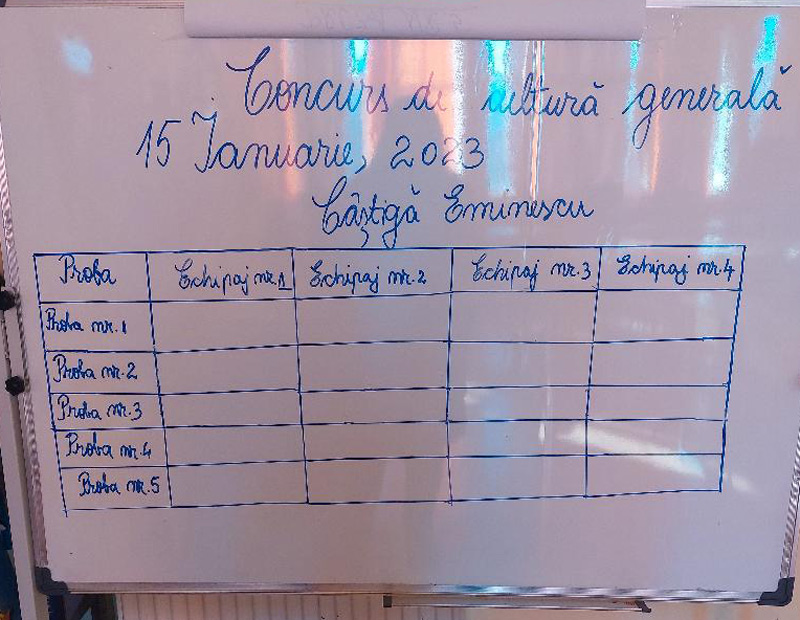 Concurs de cultură generală
15 Ianuarie, 2023
Câștigă Eminescu
Proba Echipaj nr.1 Echipaj nr.2 Echipaj nr.3 Echipaj nr.4
Proba nr.1
Proba nr.2
Proba nr.3
Proba nr.4
Proba nr.5